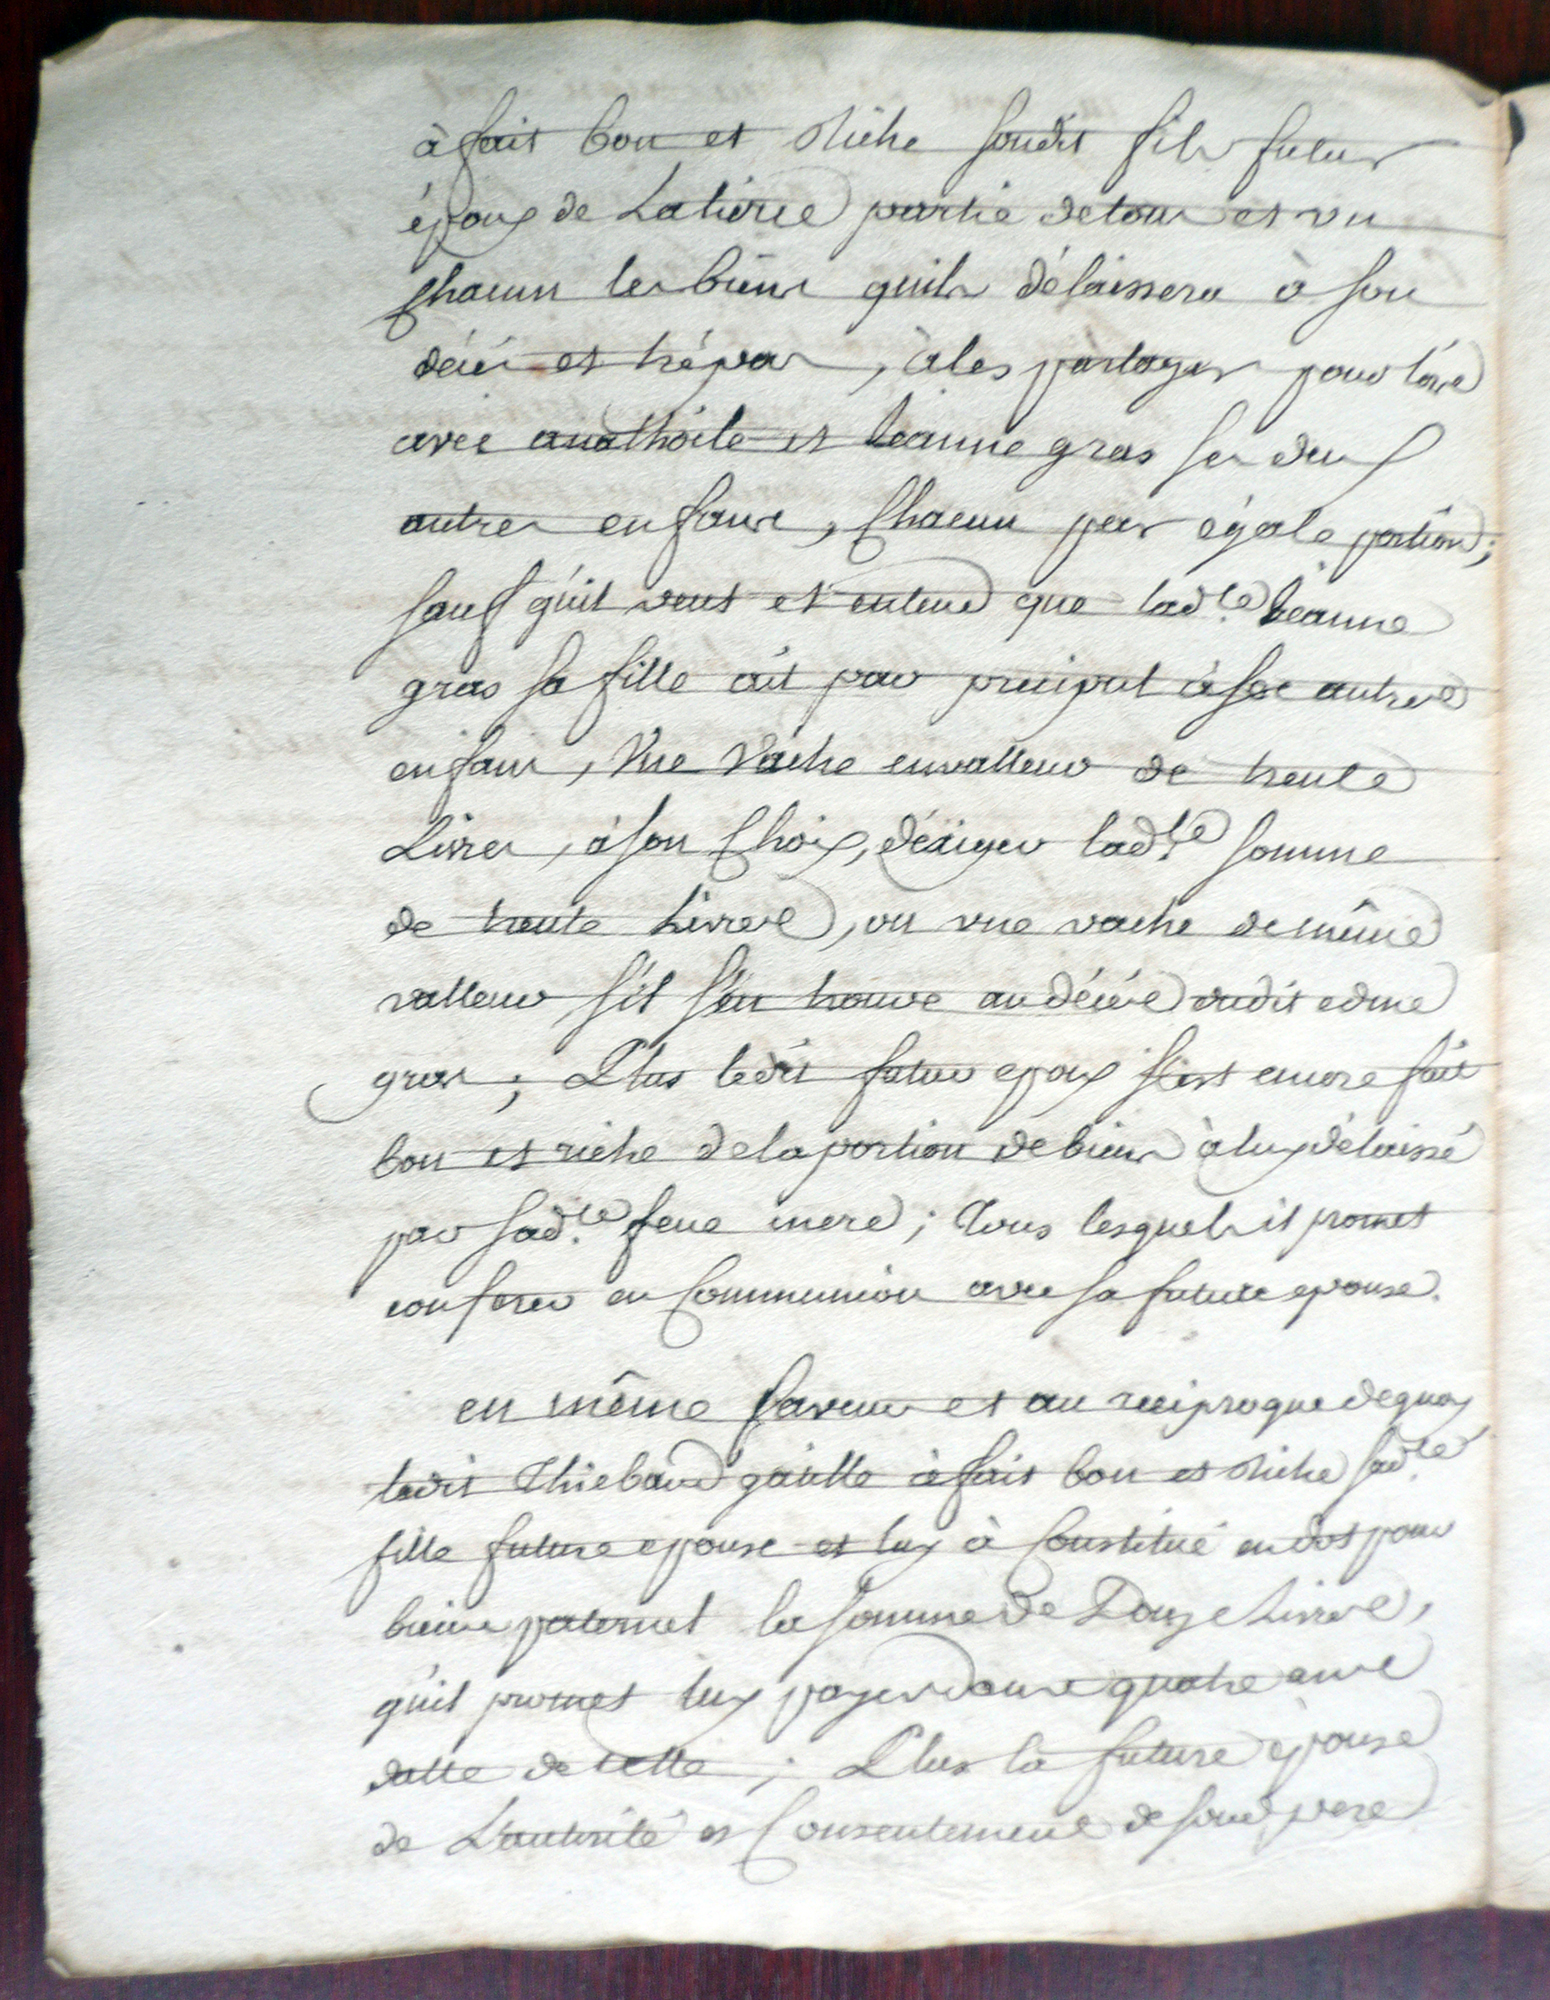 à fait bon et Riche soudit fils futur
époux de La tierce partie de tous et un
chacun les biens quils délaissera à son
décés et trépas, à les partager pour lors
avec et Jeanne gras ses deux
autres enfans, Chacun par égale portion;
sauf quil veut et entend que lad.te Jeanne
gras sa fille ait par preciput à ses autres
enfans, Une Vache en valleur de trente
Livres, à son Choix, déxiger lad.te somme
de trente Livres, ou une vache de même
valleur s'il s'en trouve au décés dudit edme
gras; Plus ledit futur epoux s'est encore fait
bon et riche de la portion de biens à luy délaissé
par sad.te feue mere; Tous lesquels il promet
conferer en Communion avec sa future epouse.
en même faveur et au reciproque dequoy
ledit Thiebaud gaulle à fait bon et Riche sad.te
fille future epouse et luy à Constitué en dot pour
biens paternel la somme de Douze Livres,
qu'il promet luy payer dans quatre ans
datte de cette; Plus la future épouse
de L'autorité et Consentement de soud pere